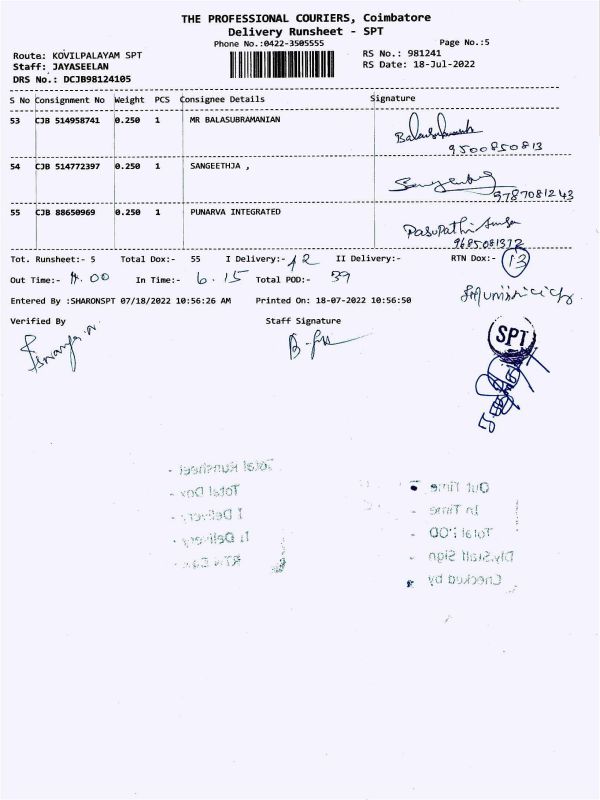 THE PROFESSIONAL COURIERS, Coimbatore
Delivery Runsheet - SPT
Phone No.:0422-3505555
Page No.:5
Route: KOVILPALAYAM SPT
RS No.: 981241
Staff: JAYASEELAN
RS Date: 18-Jul-2022
DRS No.: DCJB98124105
S No Consignment No Weight PCS Consignee Details Signature
53 CJB 514958741 0.250 1 MR BALASUBRAMANIAN
9500850813
54 CJB 514772397 0.250 1 SANGEETHJA ,
9787081243
55 CJB 88650969 0.250 1 PUNARVA INTEGRATED
9685081372
Tot. Runsheet:- 5 Total Dox:- 55 I Delivery:- 42 II Delivery:- RTN Dox:- 13
Out Time:- 11.00 In Time:- 6.15 Total POD:- 39
Entered By :SHARONSPT 07/18/2022 10:56:26 AM Printed On: 18-07-2022 10:56:50
Verified By Staff Signature
SPT
Total Runsheet -
Total Dox -
I Delivery -
II Delivery -
Out Time
In Time -
Total POD -
Dly.Staff Sign -
Checked by